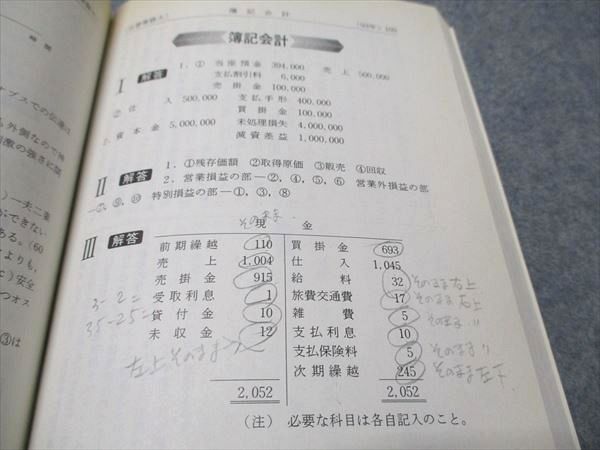 簿記会計
簿記会計
Ⅰ 解答 1. ① 当座預金 394,000 売上 500,000
支払割引料 6,000
売掛金 100,000
②仕入 500,000 支払手形 400,000
買掛金 100,000
2. 資本金 5,000,000 未処理損失 4,000,000
減資差益 1,000,000
Ⅱ 解答 1. ①残存価額 ②取得原価 ③販売 ④回収
2. 営業損益の部―②, ④, ⑤, ⑥ 営業外損益の部
―⑦, ⑨, ⑩ 特別損益の部―①, ③, ⑧
そのまま
Ⅲ 解答 現金
前期繰越 110 買掛金 693
売上 1,004 仕入 1,045
売掛金 915 給料 32 そのまま右上
3-2= 受取利息 1 旅費交通費 17 そのまま右上
35-25= 貸付金 10 雑費 5 そのまま 〃
未収金 12 支払利息 10
左上そのまま 支払保険料 5 そのまま 〃
次期繰越 245 そのまま左下
2,052 2,052
(注) 必要な科目は各自記入のこと。
時間
オプスでの伝達は
外側なので時
激の強さに関
)一夫二妻
ができない
ある。(60
よりも、
c) 安全
つオス
③は